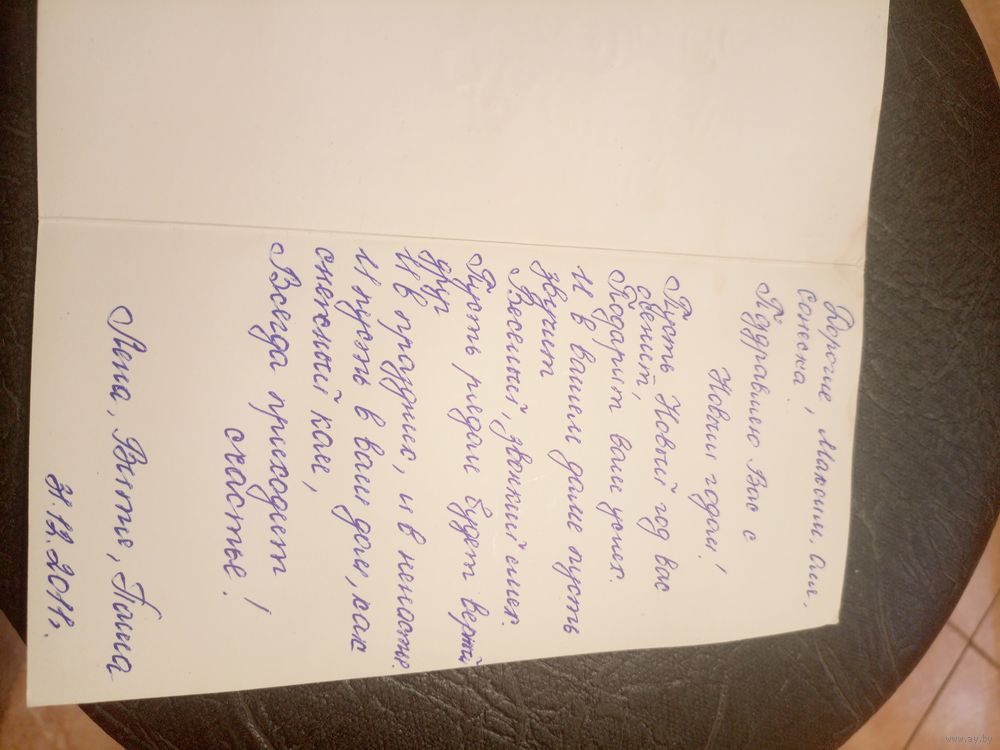 Дорогие, Максим, Оля,
Сонечка!
Поздравляю Вас с
Новым годом!
Пусть Новый год вас
осенит,
Подарит вам успех.
И в вашем доме пусть
звучит
Веселый, звонкий смех.
Пусть рядом будет верный
друг
И в праздник, и в ненастье.
И пусть в ваш дом, как
снежный ком,
Всегда приходет
счастье!
Лена, Витя, Паша
31.12.2011г.
www.ay.by